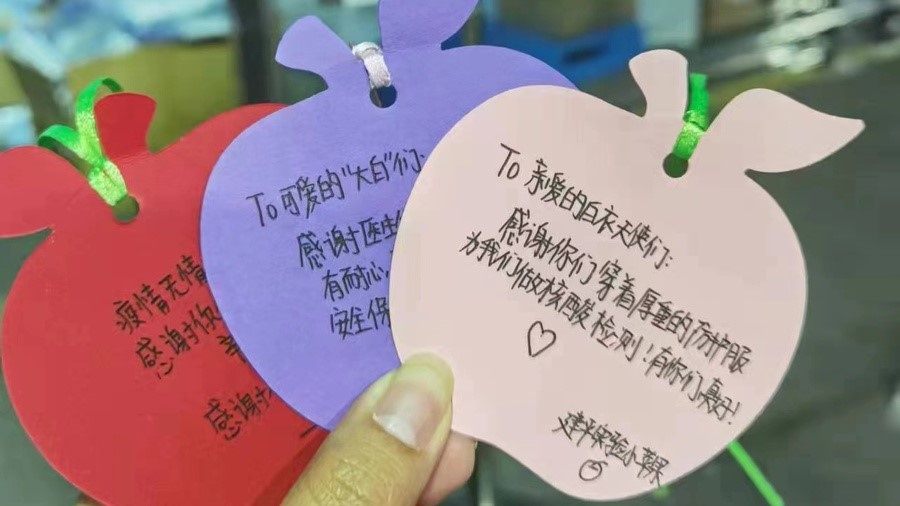 疫情无情
感谢你
感谢
To 可爱的"大白"们:
感谢医生
有耐心,
安全保
To 亲爱的白衣天使们:
感谢你们穿着厚重的防护服
为我们做核酸检测!有你们真好!
建平实验小苹果